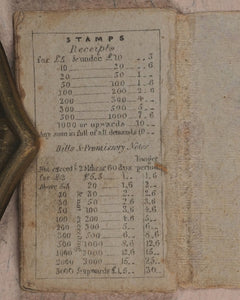 STAMPS
Receipts
for £5 & under £10 3
10 20 6
20 50 1
50 100 1.6
100 200 2.6
200 300 4
300 500 5
500 1000 7.6
1000 or upwards 10
Any sum in full of all demands 10
Bills & Promissory Notes
longer
Not exceed.g 2 Mths or 60 days period
for £5.5 1 1.6
Above 20 1.6 2
20 30 2 2.6
30 50 2.6 3.6
50 100 3.6 4.6
100 200 4.6 5
200 300 5 6
300 500 6 8.6
500 1000 8.6 12.6
1000 2000 12.6 15
2000 3000 15 25
3000 & upwards 30